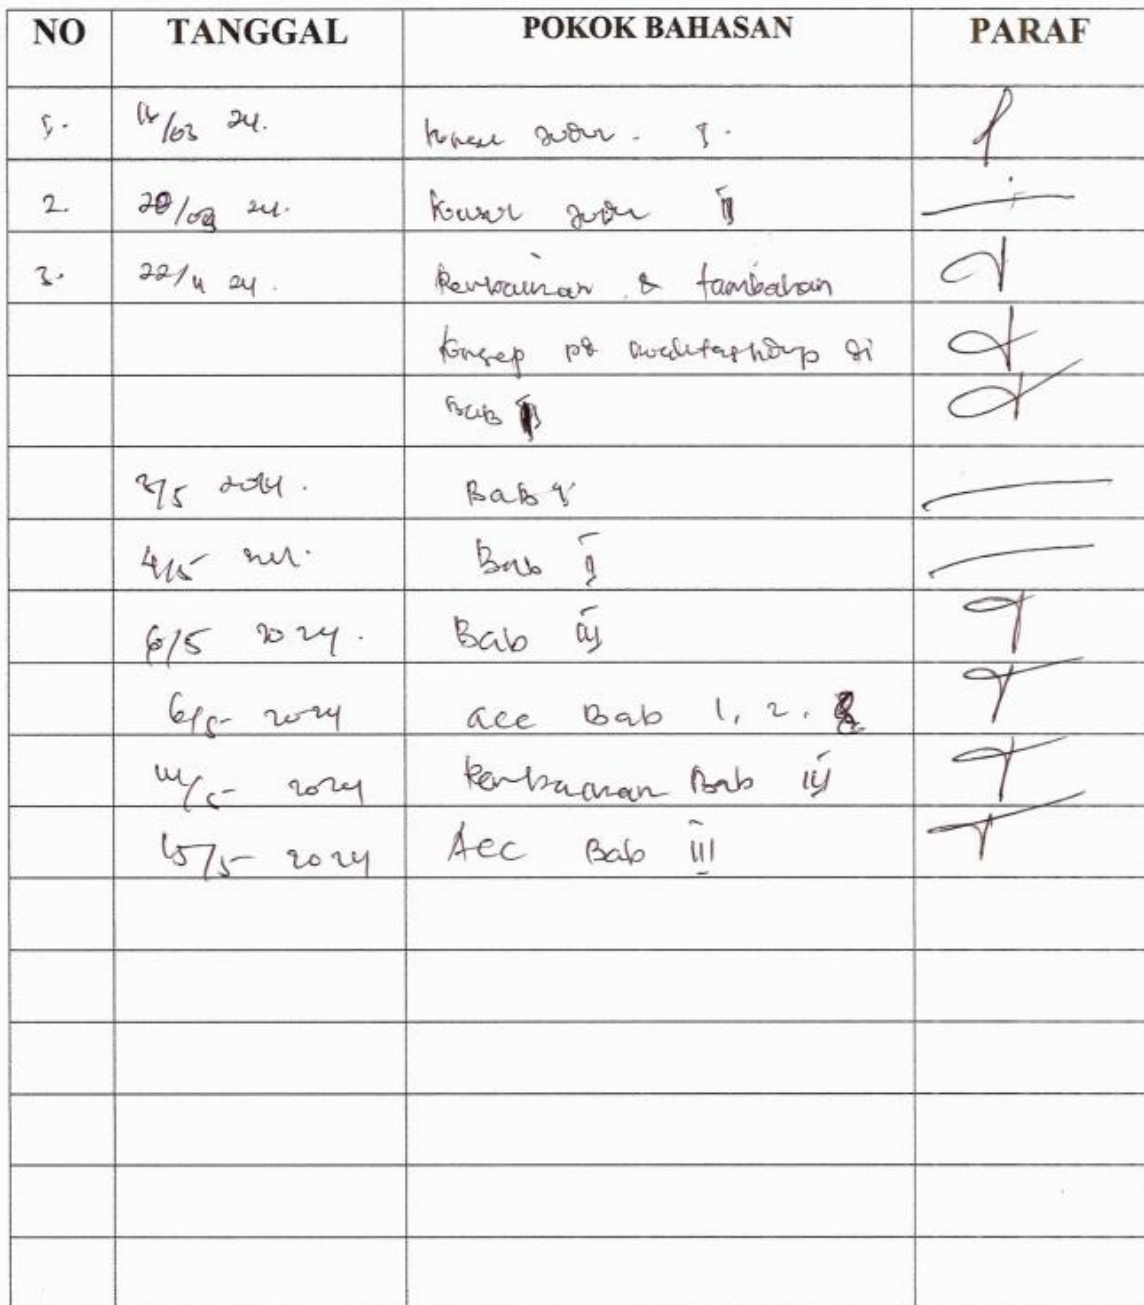 NO TANGGAL POKOK BAHASAN PARAF
1. /03 24. Konsul Judul. I.
2. 24. Konsul Judul II
3. 22/4 24. & tambahan
Konsep pd kualitas hidup di
Bab II
3/5 2024. Bab I
4/5 Bab II
6/5 2024. Bab III
6/5 2024 acc Bab 1, 2.
14/5 2024 Bab III
15/5 2024 Acc Bab III